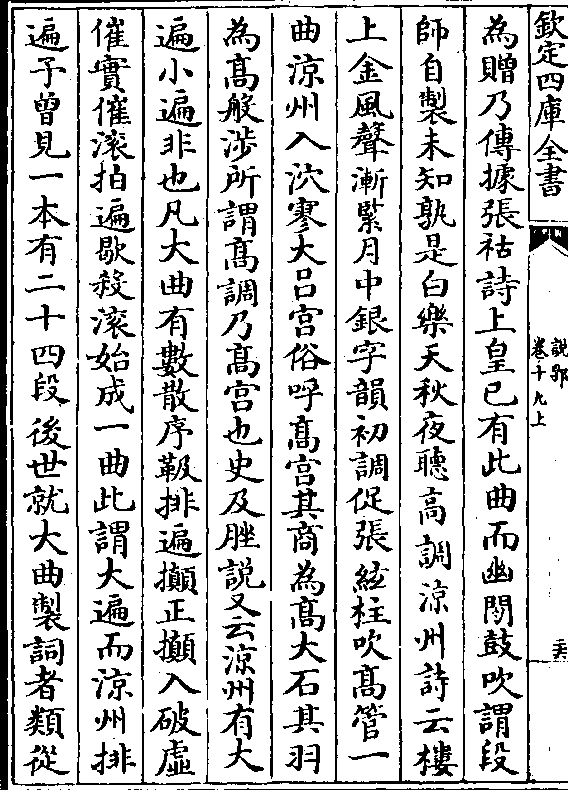 欽定四庫全書
說郛
卷十九上
為贈乃傳據張祜詩上皇已有此曲而幽閒鼓吹謂段
師自製未知孰是白樂天秋夜聽高調涼州詩云樓
上金風聲漸緊月中銀字韻初調促張絃柱吹高管一
曲涼州入泬寥大吕宫俗呼髙宫其商為髙大石其羽
為髙般涉所謂髙調乃髙宫也史及脞說又云涼州有大
遍小遍非也凡大曲有數散序靸排遍攧正攧入破虛
催實催滾拍遍歇殺滾始成一曲此謂大遍而涼州排
遍予曾見一本有二十四段後世就大曲製詞者類從